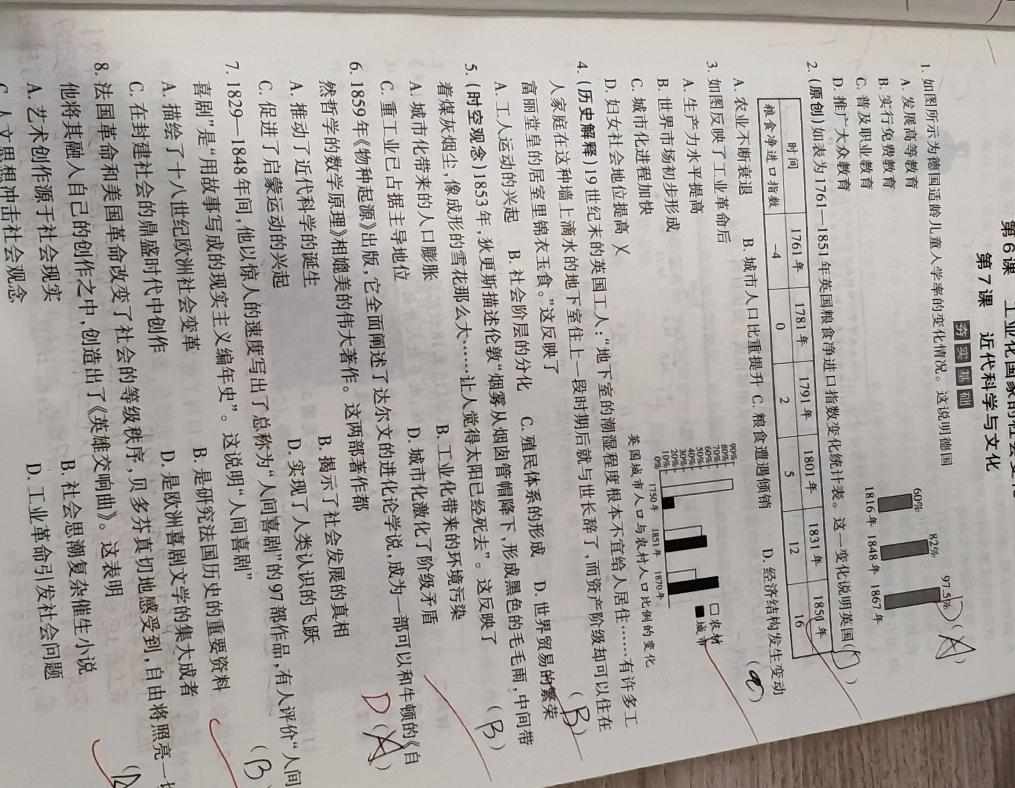 第6课 工业化国家的社会变化
第7课 近代科学与文化
夯实基础
1. 如图所示为德国适龄儿童入学率的变化情况。这说明德国
A. 发展高等教育
B. 实行免费教育
C. 普及职业教育
D. 推广大众教育
60%
82%
97.5%
1816年 1848年 1867年
2. (原创)如表为1761—1851年英国粮食净进口指数变化统计表。这一变化说明英国(D)
时间 1761年 1781年 1791年 1801年 1831年 1850年
粮食净进口指数 -4 0 2 5 12 16
A. 农业不断衰退 B. 城市人口比重提升 C. 粮食遭遇倾销 D. 经济结构发生变动
3. 如图反映了工业革命后 (a)
A. 生产力水平提高
B. 世界市场初步形成
C. 城市化进程加快
D. 妇女社会地位提高
90%
80%
70%
60%
50%
40%
30%
20%
10%
0%
1750年 1851年 1870年
农村
城市
英国城市人口与农村人口比例的变化
4. (历史解释)19世纪末的英国工人:“地下室的潮湿程度根本不宜给人居住……有许多工
人家庭在这种墙上滴水的地下室住上一段时期后就与世长辞了,而资产阶级却可以住在
富丽堂皇的居室里锦衣玉食。”这反映了 (B)
A. 工人运动的兴起 B. 社会阶层的分化 C. 殖民体系的形成 D. 世界贸易的繁荣
5. (时空观念)1853年,狄更斯描述伦敦“烟雾从烟囱管帽降下,形成黑色的毛毛雨,中间带
着煤灰烟尘,像成形的雪花那么大……让人觉得太阳已经死去”。这反映了 (B)
A. 城市化带来的人口膨胀 B. 工业化带来的环境污染
C. 重工业已占据主导地位 D. 城市化激化了阶级矛盾
6. 1859年《物种起源》出版,它全面阐述了达尔文的进化论学说,成为一部可以和牛顿的《自
然哲学的数学原理》相媲美的伟大著作。这两部著作都 D(A)
A. 推动了近代科学的诞生 B. 揭示了社会发展的真相
C. 促进了启蒙运动的兴起 D. 实现了人类认识的飞跃
7. 1829—1848年间,他以惊人的速度写出了总称为“人间喜剧”的97部作品,有人评价“人间
喜剧”是“用故事写成的现实主义编年史”。这说明“人间喜剧” (B
A. 描绘了十八世纪欧洲社会变革 B. 是研究法国历史的重要资料
C. 在封建社会的鼎盛时代中创作 D. 是欧洲喜剧文学的集大成者
8. 法国革命和美国革命改变了社会的等级秩序,贝多芬真切地感受到,自由将照亮一
他将其融入自己的创作之中,创造出了《英雄交响曲》。这表明
A. 艺术创作源于社会现实 B. 社会思潮复杂催生小说
C. 人文思想冲击社会观念 D. 工业革命引发社会问题